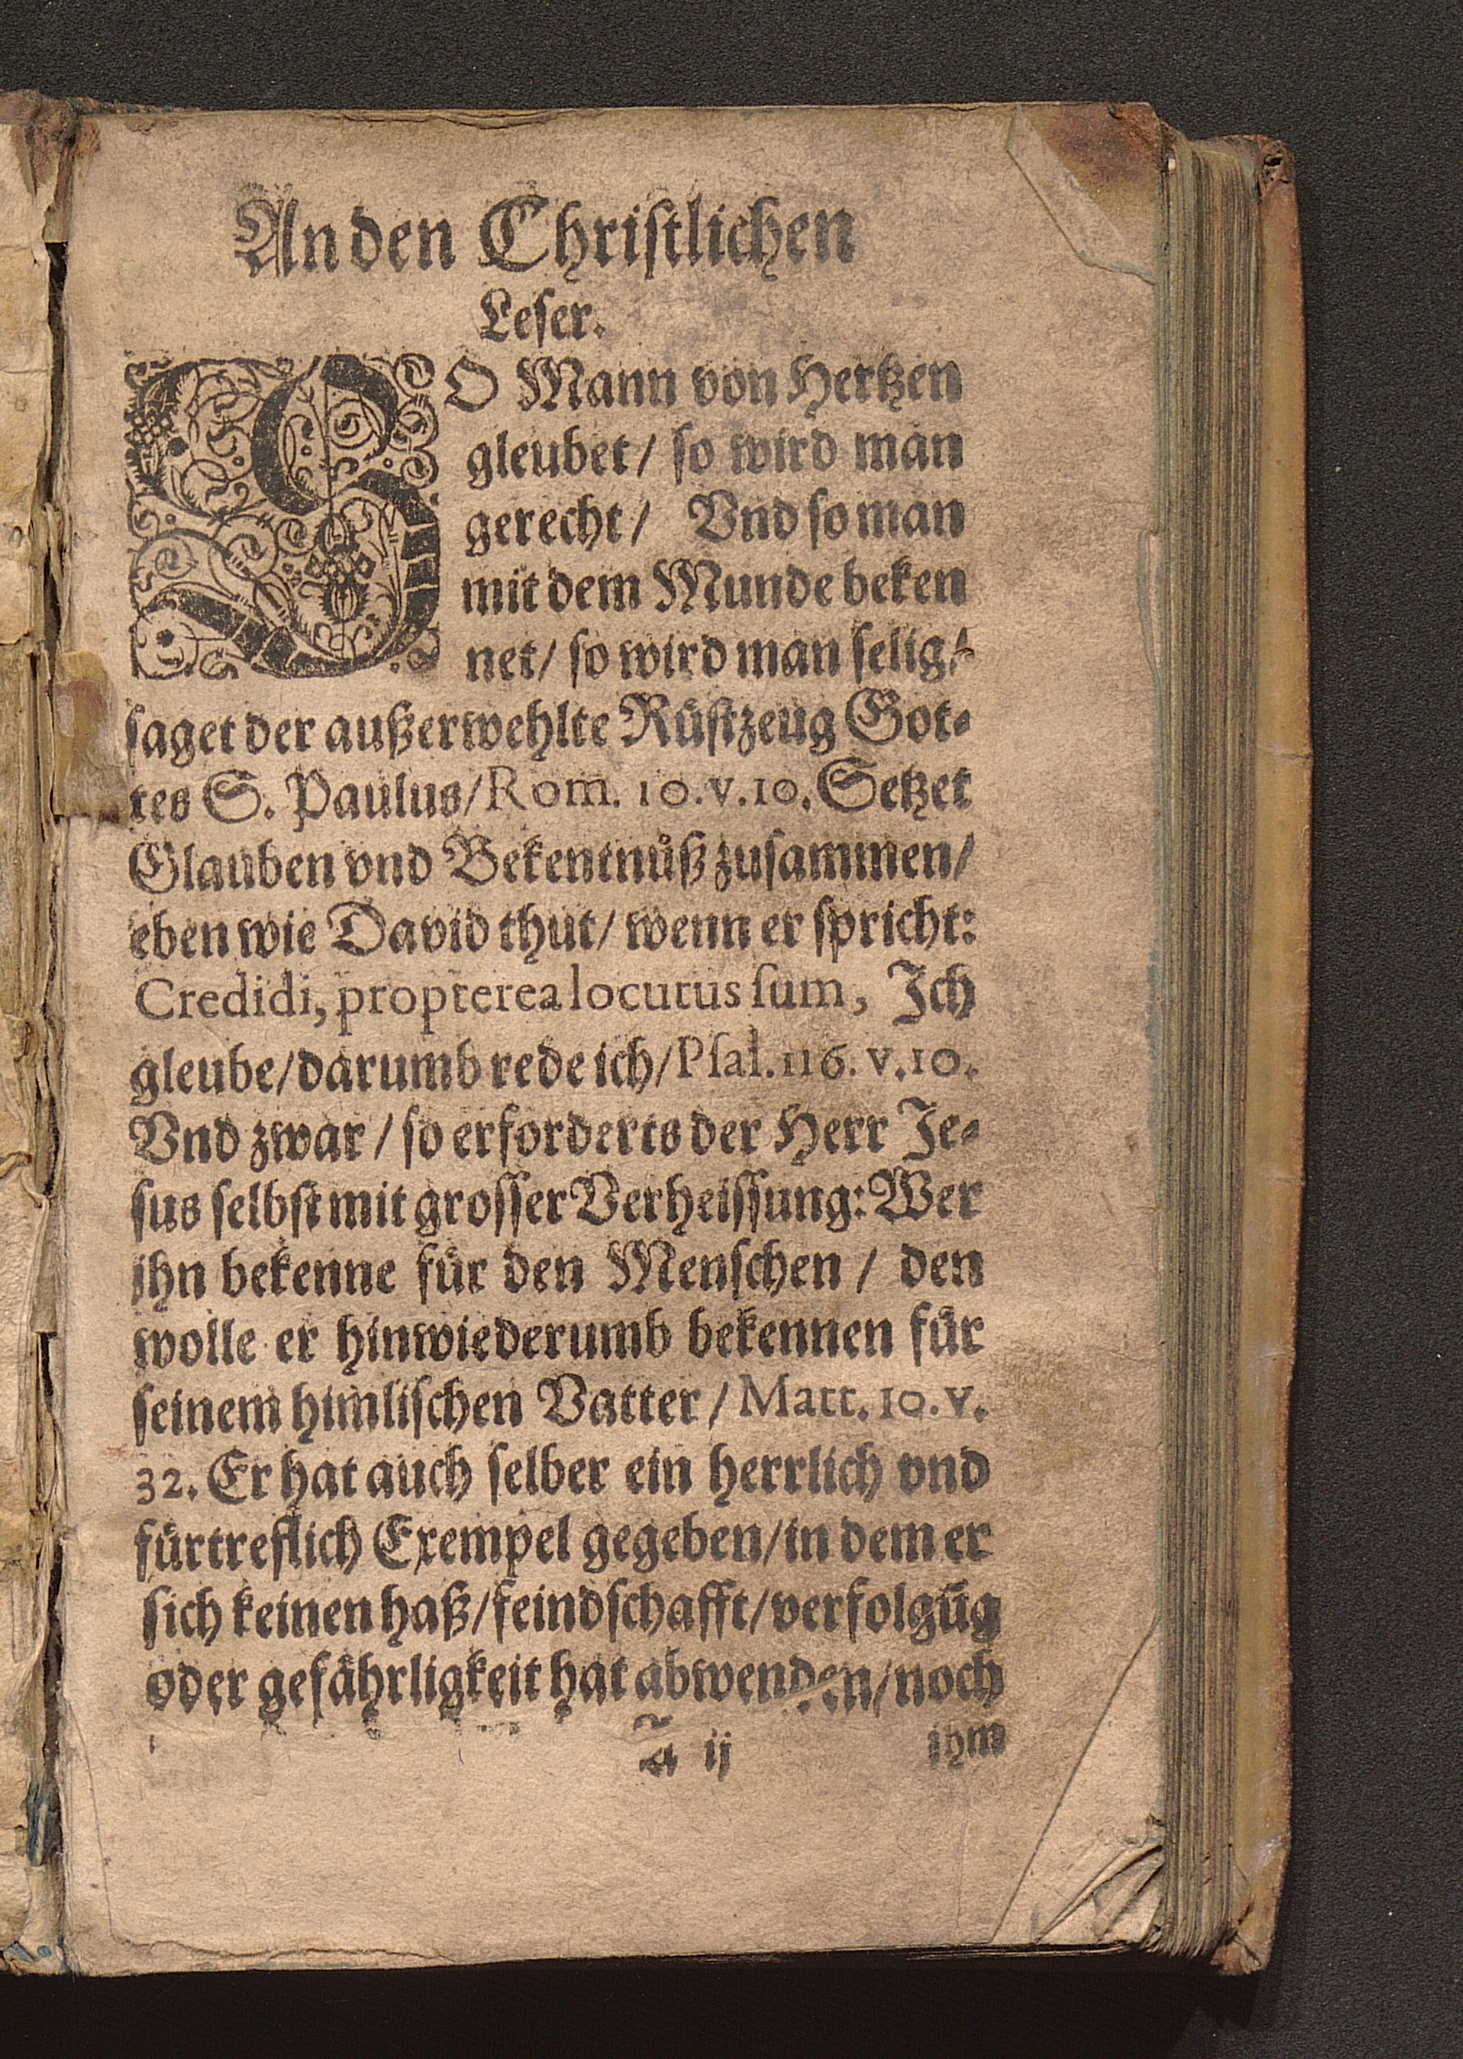 An den Christlichen
Leser.
SO Mann von Hertzen
gleubet/ so wird man
gerecht/ Vnd so man
mit dem Munde beken
net/ so wird man selig/
saget der außerwehlte Rüstzeug Got⸗
tes S. Paulus/ Rom. 10. v. 10. Setzet
Glauben vnd Bekentnůß zusammen/
eben wie David thut/ wenn er spricht:
Credidi, propterea locutus sum, Ich
gleube/ darumb rede ich/ Psal. 116. v. 10.
Vnd zwar/ so erforderts der Herr Je⸗
sus selbst mit grosser Verheissung: Wer
ihn bekenne für den Menschen/ den
wolle er hinwiederumb bekennen für
seinem himlischen Vatter/ Matt. 10. v.
32. Er hat auch selber ein herrlich vnd
fürtreflich Exempel gegeben/ in dem er
sich keinen haß/ feindschafft/ verfolgūg
oder gefährligkeit hat abwenden/ noch
A ij ihm